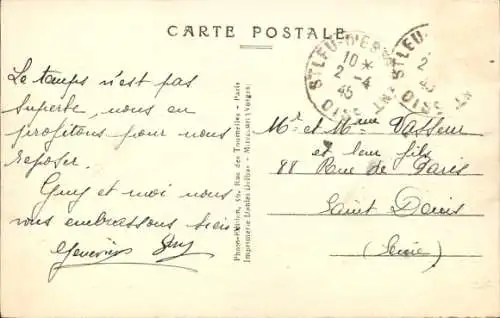 CARTE POSTALE
Le temps n'est pas
superbe, nous en
profitons pour nous
reposer.
Guy et moi nous
vous embrassons bien
Geneviève Guy
Photo-Edition, 59, Rue des Tournelles - Paris
Imprimerie Daniel Delbor - (Vosges)
ST LEU-D'ESSERENT
10 *
2 -4
45
OISE
ST LEU-
2
45
OISE
Mr et Mme Vasseur
et leur fils
88 Rue de Paris
Saint Denis
(Seine)